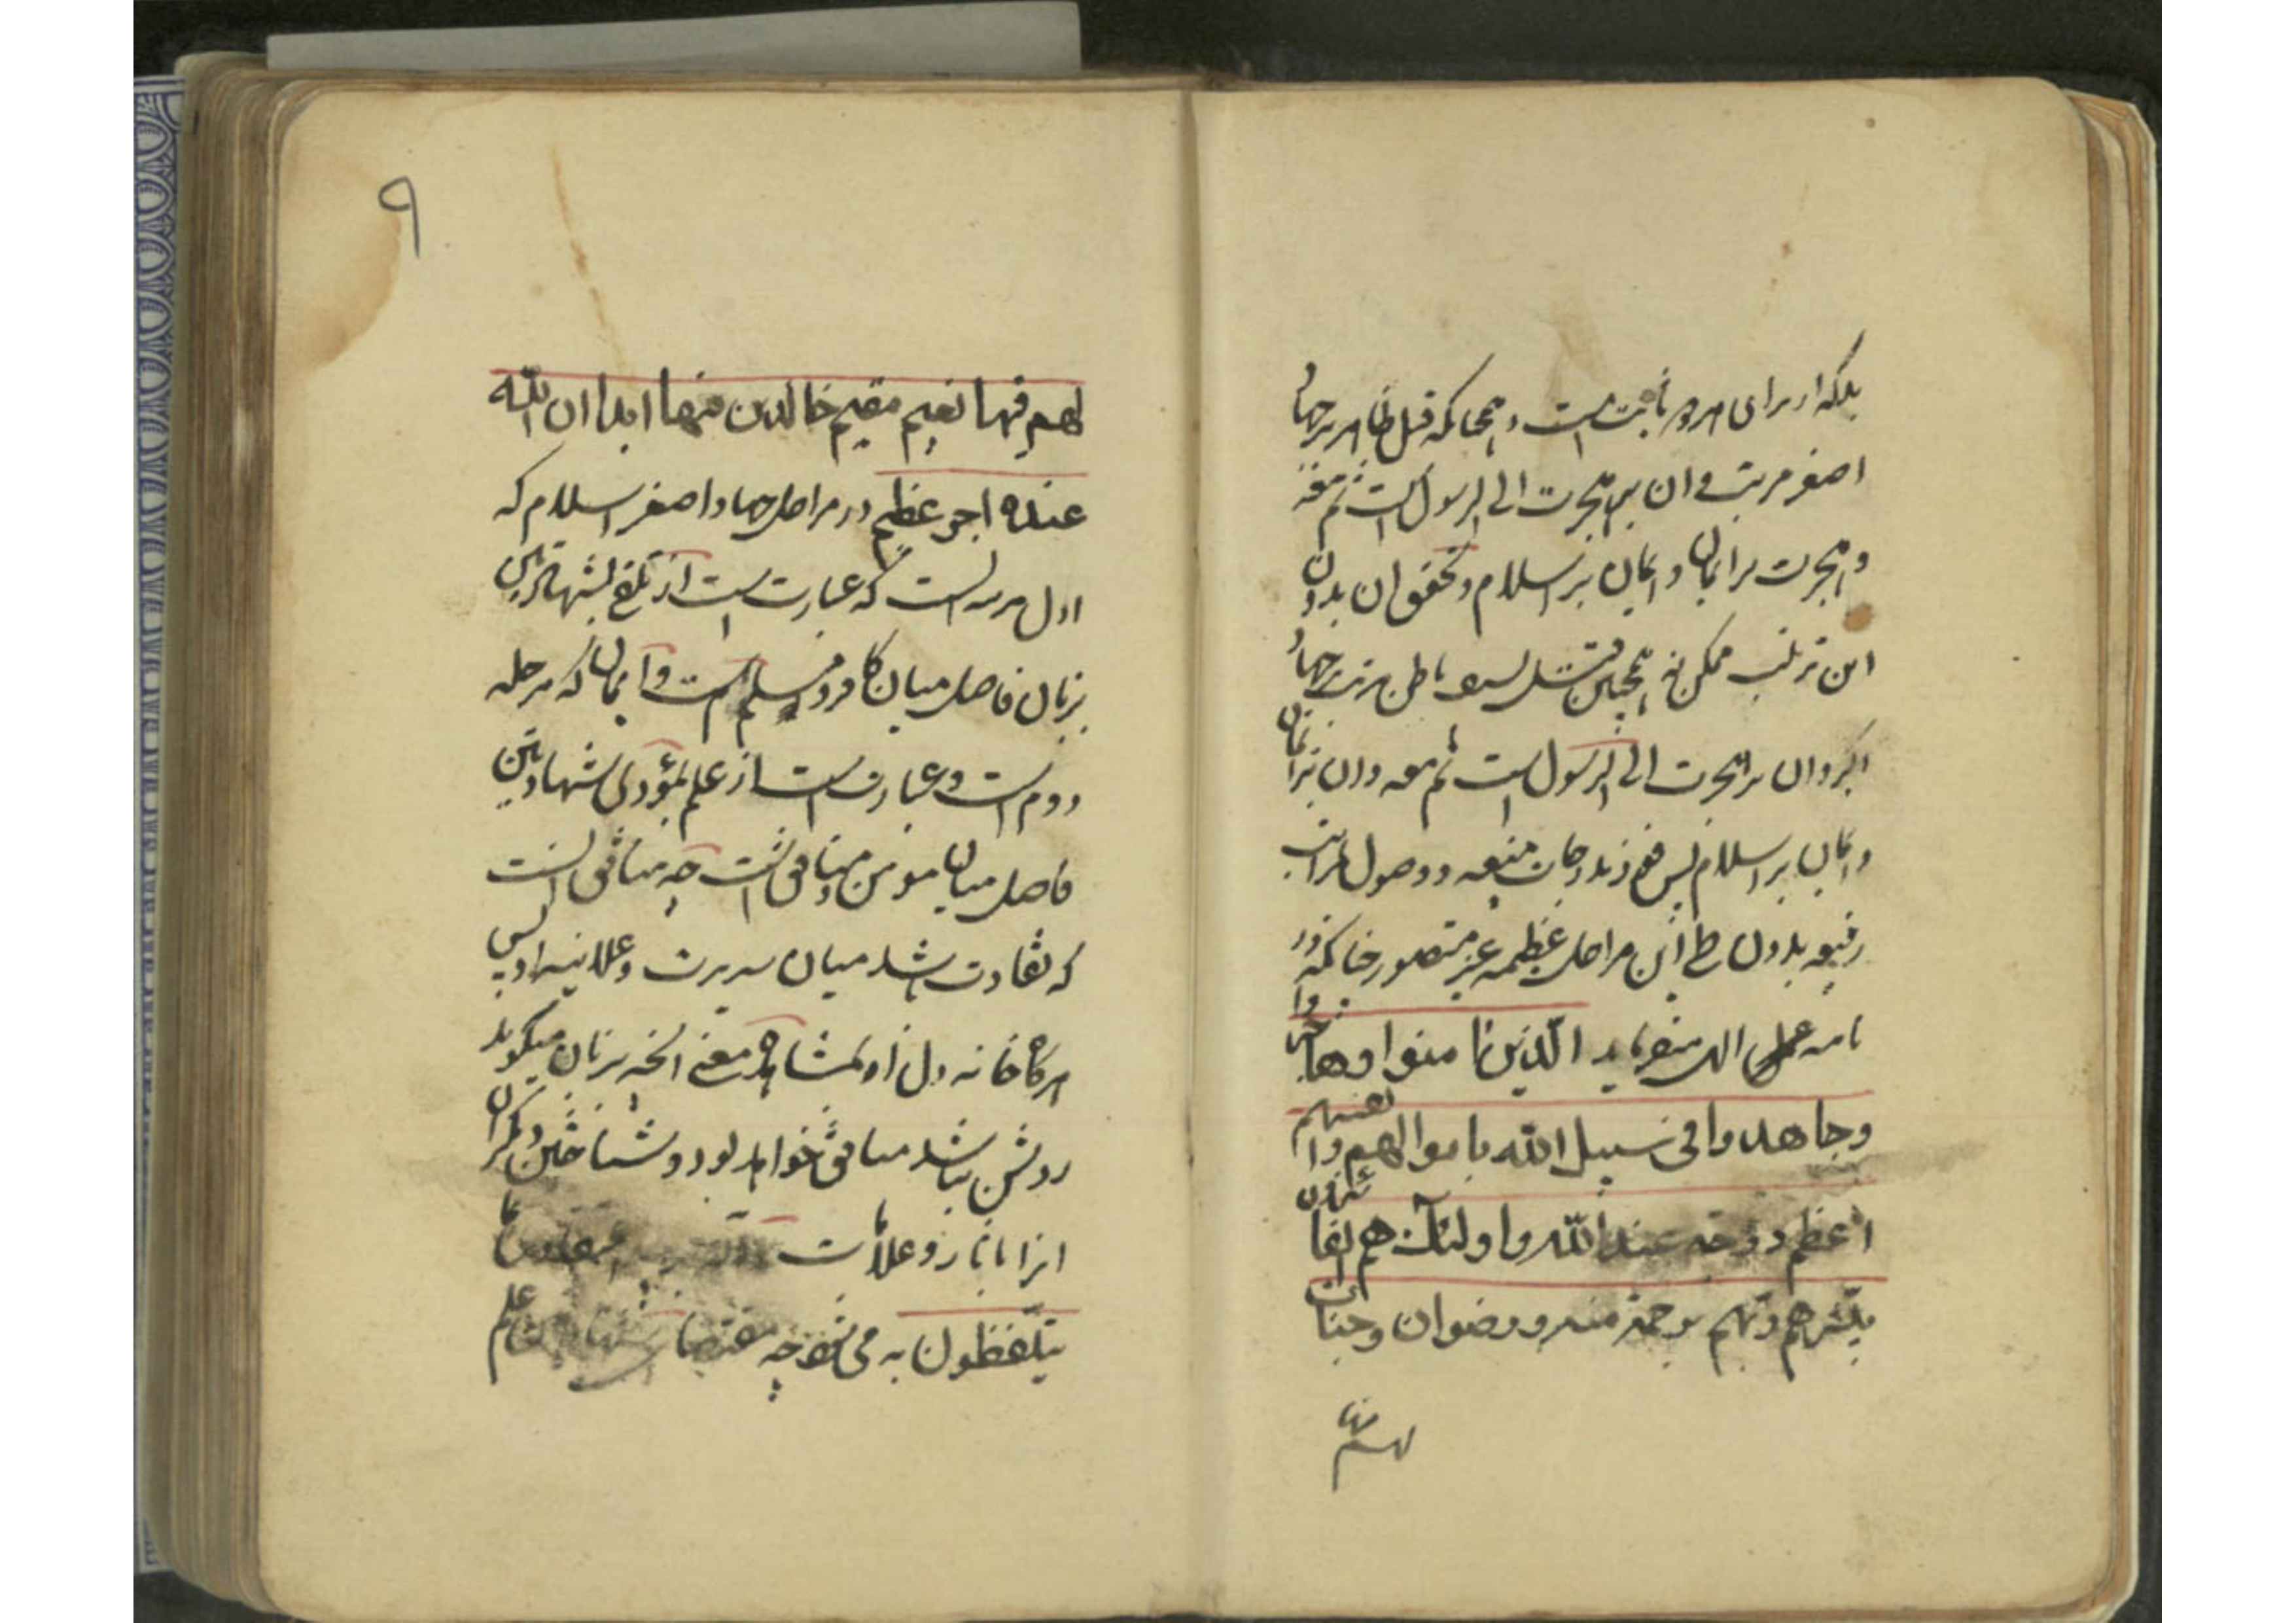 بلکه از برای امروز ثابت است و همچنانکه قتل ظاهر بر جهاد
اصغر مرتب و ان بر هجرت الی الرسول است ثم معه
و هجرت بر ایمان و ایمان بر اسلام و تحقق ان بدون
این ترتیب ممکن نه همچنین قتل باطن مرتب بر جهاد
اکبر و ان بر هجرت الی الرسول است ثم معه و ان بر ایمان
و ایمان بر اسلام پس فوز بدرجات منیعه و وصول بمراتب
رفیعه بدون طی این مراحل عظیمه غیر متصور چنانکه در
نامه عملی الهی میفرماید الّذین امنوا وهاجروا
وجاهدوا فی سبیل الله باموالهم وانفسهم
اعظم درجة عند الله واولئک هم الفائزون
یبشّرهم ربّهم برحمة منه ورضوان وجنات
لهم فیها
٩
لهم فیها نعیم مقیم خالدین فیها ابدا ان الله
عنده اجر عظیم در مراحل جهاد اصغر اسلام که
اول مرحله است که عبارت است از تلفظ بشهادتین
بزبان فاصل میان کافر و مسلم است و ایمان که مرحله
دوم است و عبارت است از علم بمؤدی شهادتین
فاصل میان مؤمن و منافق است چه منافق انست
که تفاوت باشد میان سریرت و علانیه او پس
هرکاه خانه دل او بمشاهده معنی انچه بزبان میکوید
روشن نباشد منافق خواهد بود و شناختن دیکران
انرا باثار و علامات
یتلفظون به می شود چه مقتضای شهادتین علم